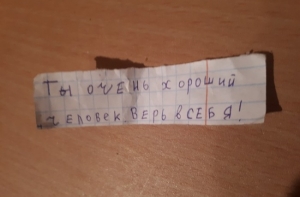 Ты очень хороший
человек Верь в СЕБЯ!